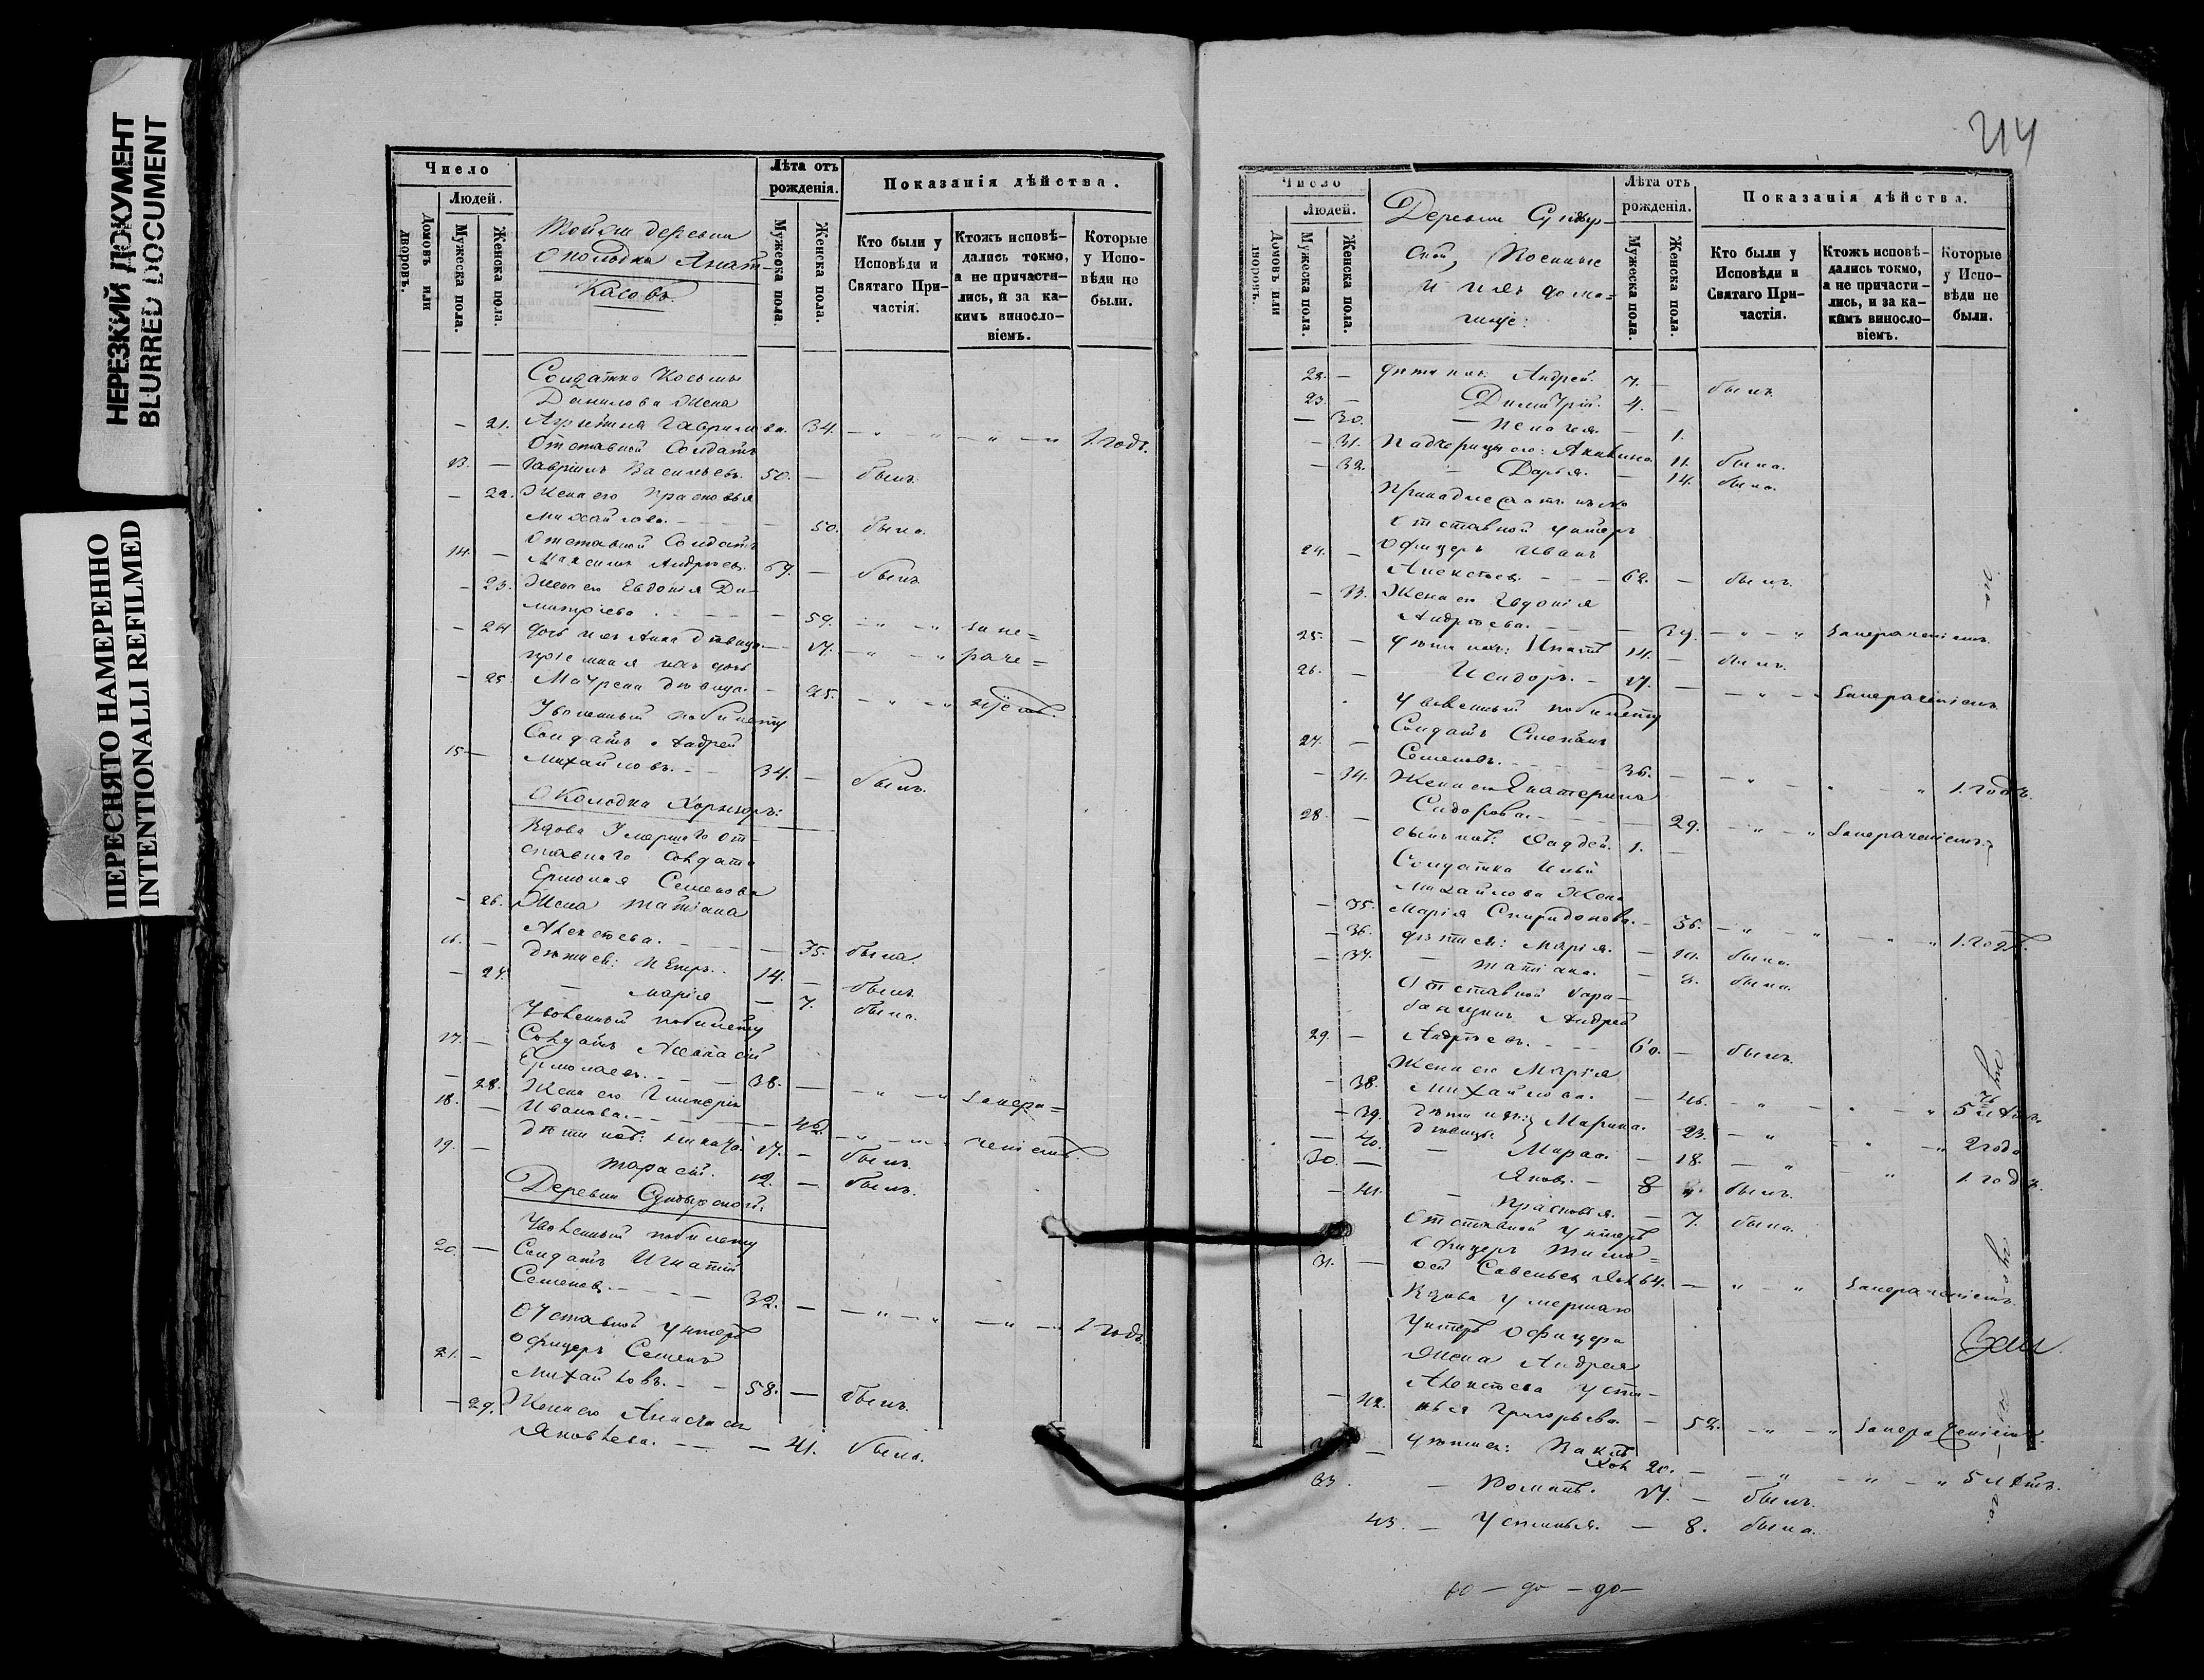 НЕРЕЗКИЙ ДОКУМЕНТ
BLURRED DOCUMENT
ПЕРЕСНЯТО НАМЕРЕННО
INTENTIONALLI REFILMED
Число
Людей.
Домовъ или дворовъ.
Мужеска пола.
Женска пола.
Тойже деревни
Околодка
касовъ.
Лѣта отъ рожденія.
Мужеска пола.
Женска пола.
Показанія дѣйства.
Кто были у Исповѣди и Святаго Причастія.
Ктожъ исповѣдались токмо, а не причастились, и за какимъ винословіемъ.
Которые у Исповѣди не были.
Солдатка Косьмы
Данилова жена
— 21. Гаврилова. 34. — " " — " — " 1 годъ.
Отставной Солдатъ
13. — Гавріилъ Васильевъ. 50. — былъ.
— 22. Жена его Прасковья
Михайлова. — 50. была.
Отставной Солдатъ
14. — Максимъ Андреевъ. 69. — былъ.
— 23. Жена его Евдокія Ди-
митріева — 59. — " — " за не=
— 24 дочь ихъ Анна дѣвица — 17. — " — " раче=
пріемная ихъ дочь
— 25. Матрена дѣвица. — 25. — " — " ніемъ.
Уволенный по билету
Солдатъ Андрей
15 — Михайловъ. — 34. — былъ.
Околодка
Вдова Умершаго от-
ставнаго Солдата
Ермолая Семенова
— 26. Жена Татіана
Алексѣева. — 75. была.
16. — дѣти ея: Петръ. 14. — былъ.
— 27. — Марія — 7. была.
Уволенный по билету
17. — Солдатъ Аѳанасій
Ермолаевъ. — 38. —
— 28. Жена его Гликерія — " — " За нера=
18. — Иванова. — 42. — " — " ченіемъ.
дѣти ихъ: 17. — былъ.
19. — Тарасій. 12. — былъ.
Деревни Сундырской.
Уволенный по билету
20. — Солдатъ Игнатій
Семеновъ. — 32. — — " — " — " — 1 годъ.
Отставной Унтеръ
офицеръ Семенъ
21. — Михайловъ. — 58. — былъ.
— 29. Жена его Анастасія
Яковлева. — — 41. была.
214
Число
Людей.
Домовъ или дворовъ.
Мужеска пола.
Женска пола.
Деревни Сундыр-
ской, Военные
и ихъ дома=
шніе:
Лѣта отъ рожденія.
Мужеска пола.
Женска пола.
Показанія дѣйства.
Кто были у Исповѣди и Святаго Причастія.
Ктожъ исповѣдались токмо, а не причастились, и за какимъ винословіемъ.
Которые у Исповѣди не были.
22. — дѣти ихъ: Андрей. 7. — былъ.
23. — Димитрій. 4. —
— 30. — Пелагея. — 1.
— 31. Падчерицы его: Акилина. 11. была.
— 32. — Дарья. — 14. была.
отставной унтеръ
24. — офицеръ Иванъ
Алексѣевъ. — 62. — былъ.
— 33. Жена его Евдокія
Андреева. — — " — " За нераченіемъ.
25. — дѣти ихъ: Игнатій 14. — былъ.
26. — Исидоръ. — 17. — — " — За нераченіемъ.
Уволенный по билету
Солдатъ Степанъ
27. — Семеновъ. — 36. — — " — " — " 1. годъ.
— 34. Жена его Екатерина
Сидорова. — 29. — " — " За нераченіемъ.
28. — сынъ ихъ: Фаддей. 1. —
Солдатка Ильи
Михайлова Жена
— 35. Марія Спиридонова. — 36. — " — " — " 1. годъ.
— 36. дѣти ея: Марія. — была.
— 37. — Татіана. — 8. была.
Отставной бара-
банщикъ Андрей
29. — Андреевъ. — 60. — былъ.
Жена его Марія
— 38. Михайлова. — 46. — " — " — " 5 лѣтъ.
— 39. дѣти ихъ: Марина. 23. — " — " 2 года
— 40. дѣвицы. — Марѳа. — 18. — " — " 1. годъ.
30. — Яковъ. — 8 былъ.
— 41. — Прасковья. — 7. была.
Отставной Унтеръ
офицеръ Тимо=
31. — ѳей Савельевъ 64. — " — " За нераченіемъ.
Вдова умершаго
Унтеръ офицера
Жена Андрея
Алексѣева Усти-
— 42. нья Григорьева. — 52. — " — " За нераченіемъ
— дѣти ея: 20. — — " — " — " 5 лѣтъ.
33. — Романъ. 17. — былъ.
43. — Устинья. — 8. была.